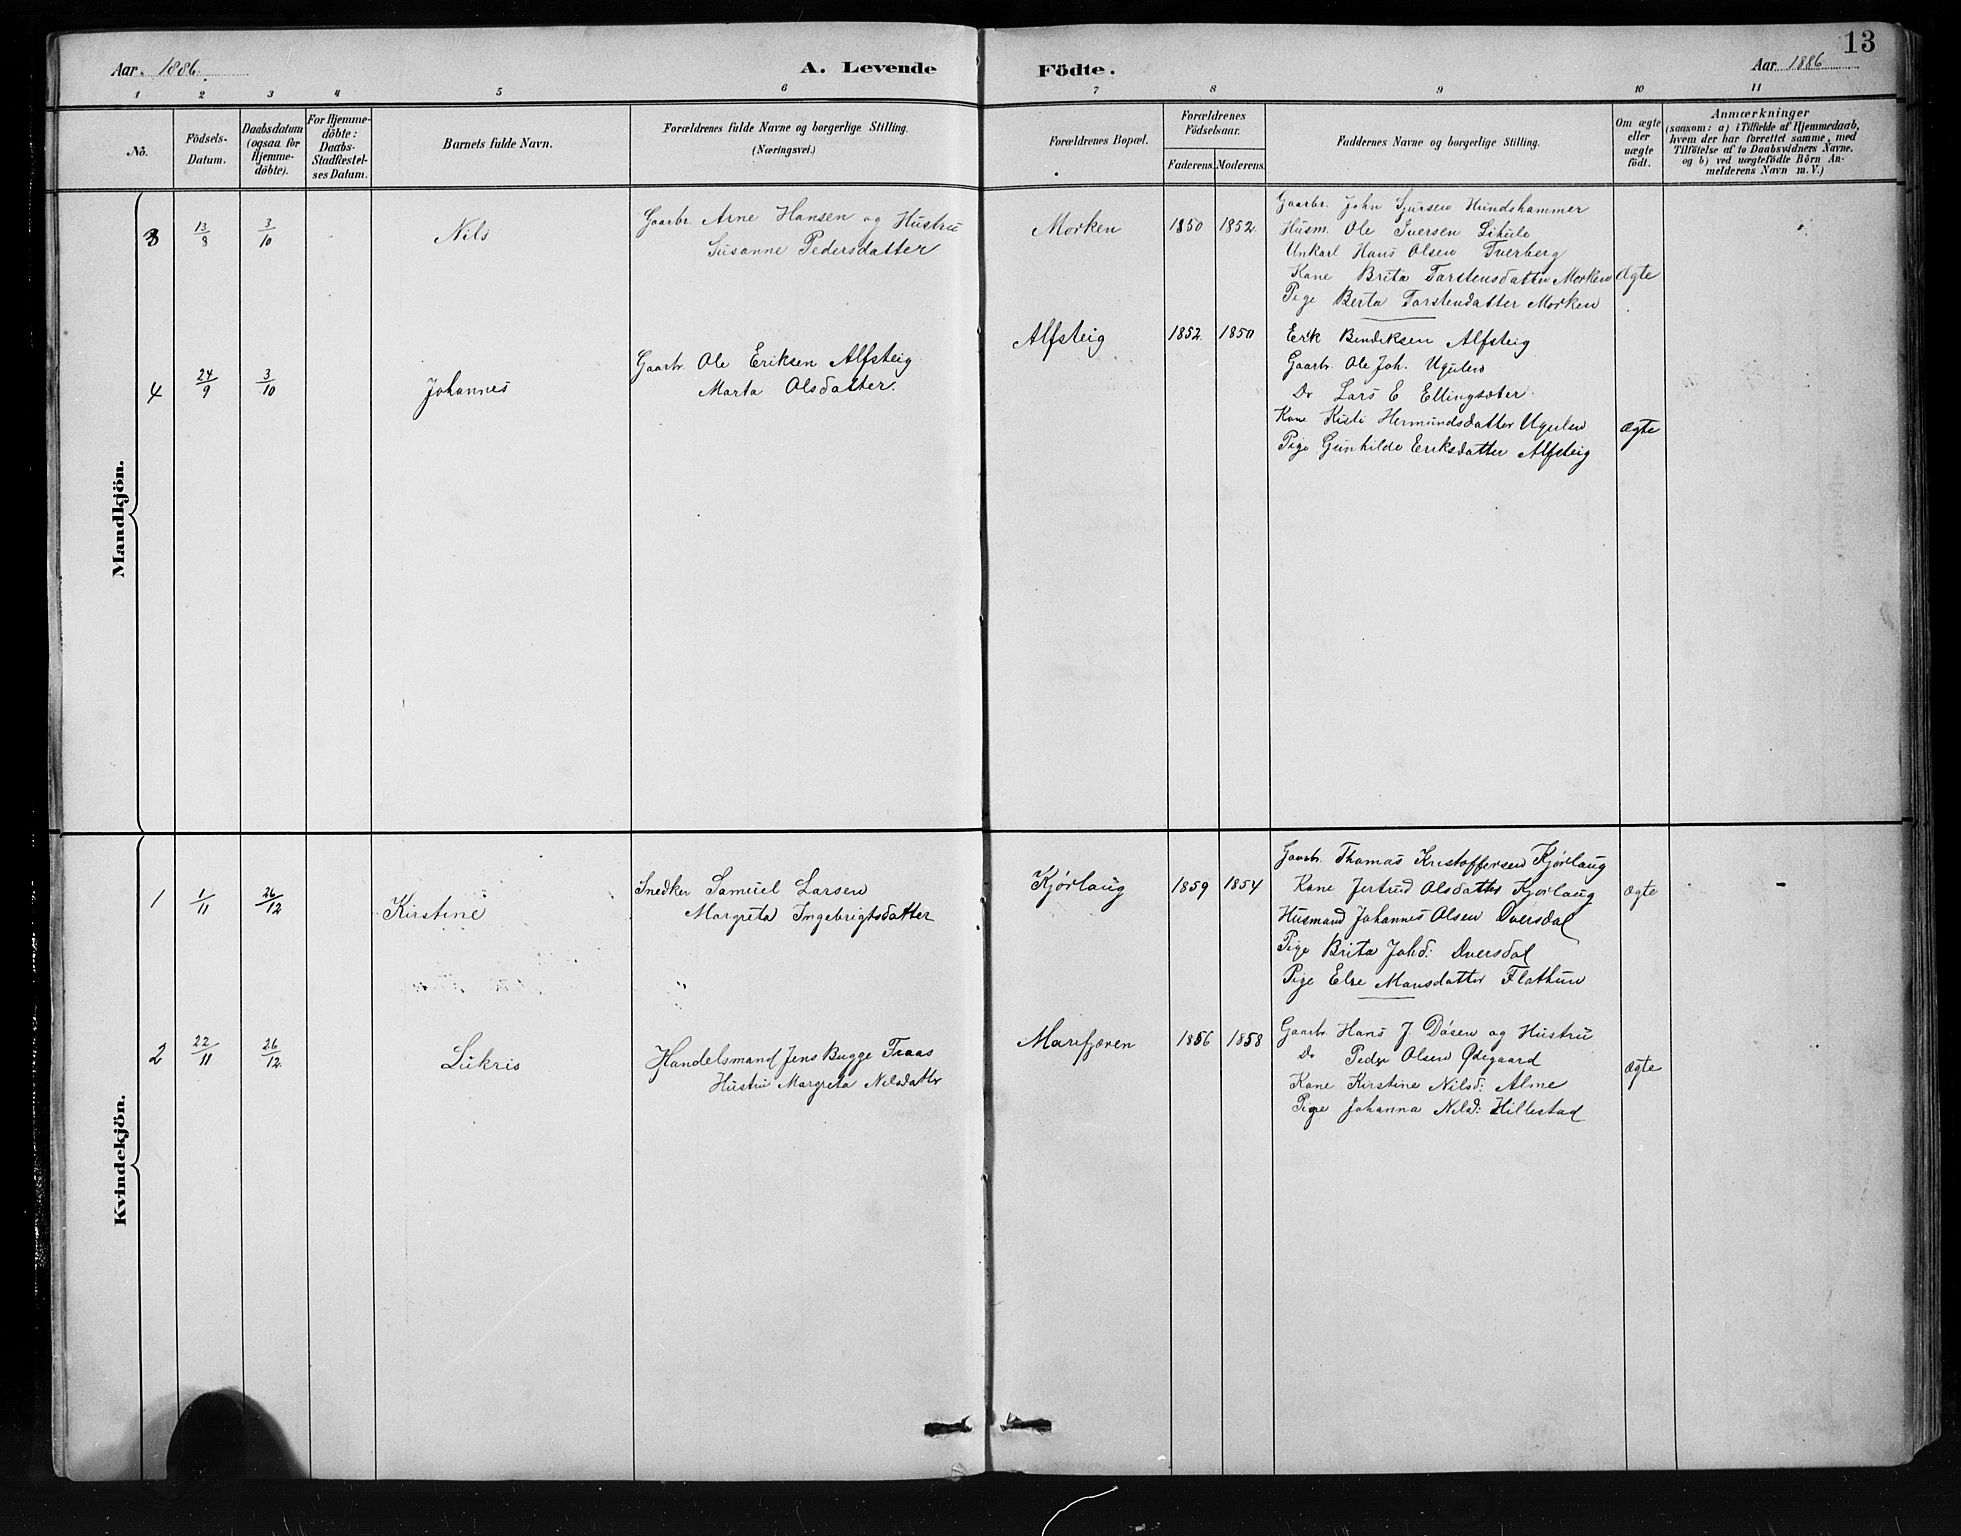 13
Aar. 1886.
A. Levende Födte.
Aar 1886
1 2 3 4 5 6 7 8 9 10 11
No.
Födsels-Datum.
Daabsdatum (ogsaa for Hjemme-döbte).
For Hjemme-döbte: Daabs-Stadfæstel-ses Datum.
Barnets fulde Navn.
Forældrenes fulde Navne og borgerlige Stilling.
(Næringsvei.)
Forældrenes Bopæl.
Forældrenes Födselsaar.
Faderens. Moderens.
Faddernes Navne og borgerlige Stilling.
Om ægte eller uægte födt.
Anmærkninger
(saasom: a) i Tilfælde af Hjemmedaab,
hvem der har forrettet samme, med
Tilföielse af to Daabsvidners Navne.
og b) ved uægtefödte Börn An-
melderens Navn m. V.)
Mandkjön.
3 13/8 3/10 Nils
Gaarbr. Arne Hansen og Hustru
Susanne Pedersdatter
Morken 1850 1852.
Gaarbr. John Sjursen Hundshammer
Husm. Ole Iversen Lihule
Unkarl Hans Olsen Tverberg
Kone Brita Torstensdatter Morken Ægte
Pige Berta Torstendatter Morken
4 24/9 3/10 Johannes
Gaarbr. Ole Eriksen Alfsteig
Marta Olsdatter.
Alfsteig 1852. 1850
Erik Bendiksen Alfsteig
Gaarbr. Ole Joh. Ugulen
Do Lars E Ellingsæter.
Kone Kisti Hermundsdatter Ugulen Ægte
Pige Gunhilde Eriksdatter Alfsteig
Kvindekjön.
1 1/11 26/12 Kirstine
Snedker Samuel Larsen
Margreta Ingebrigtsdatter
Kjørlaug 1859 1854
Gaarbr. Thomas Kristoffersen Kjørlaug
Kone Jertrud Olsdatter Kjørlaug Ægte
Husmand Johannes Olsen Dversdal
Pige Brita Johd: Dversdal
Pige Else Monsdatter Flathun
2 22/11 26/12. Lukris
Handelsmand Jens Bugge Fraas
Hustru Margreta Nilsdatter
Marefjæren 1856 1858
Gaarbr Hans J. Døsen og Hustru
Do Peder Olsen Ødegaard
Kone Kirstine Nilsd: Alme Ægte
Pige Johanna Nilsd: Hillestad